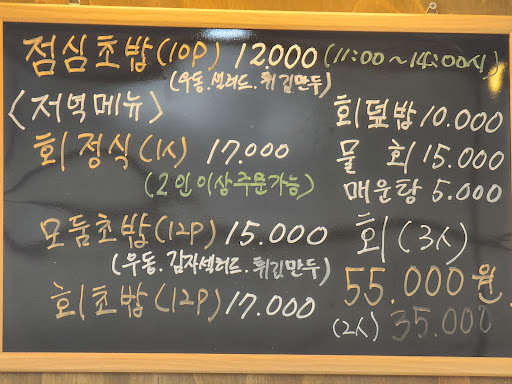 점심초밥(10P) 12.000 (11:00~14:00시)
(우동.샐러드.튀김만두)
<저녁메뉴>
회정식(1人) 17.000
(2인이상주문가능)
모듬초밥(12P) 15.000
(우동.감자샐러드.튀김만두)
회초밥(12P) 17.000
회덮밥 10.000
물회 15.000
매운탕 5.000
회(3人)
55.000원
(2人) 35.000